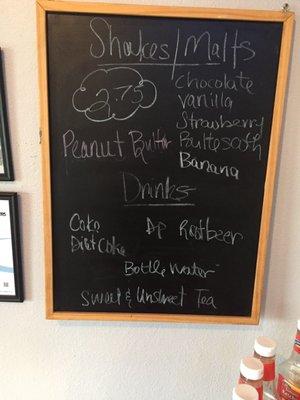 Shakes/Malts
2.75
Chocolate
Vanilla
Strawberry
Peanut Butter
Banana
Drinks
Coke
Diet Coke
Dp Rootbeer
Bottle Water
Sweet & Unsweet Tea